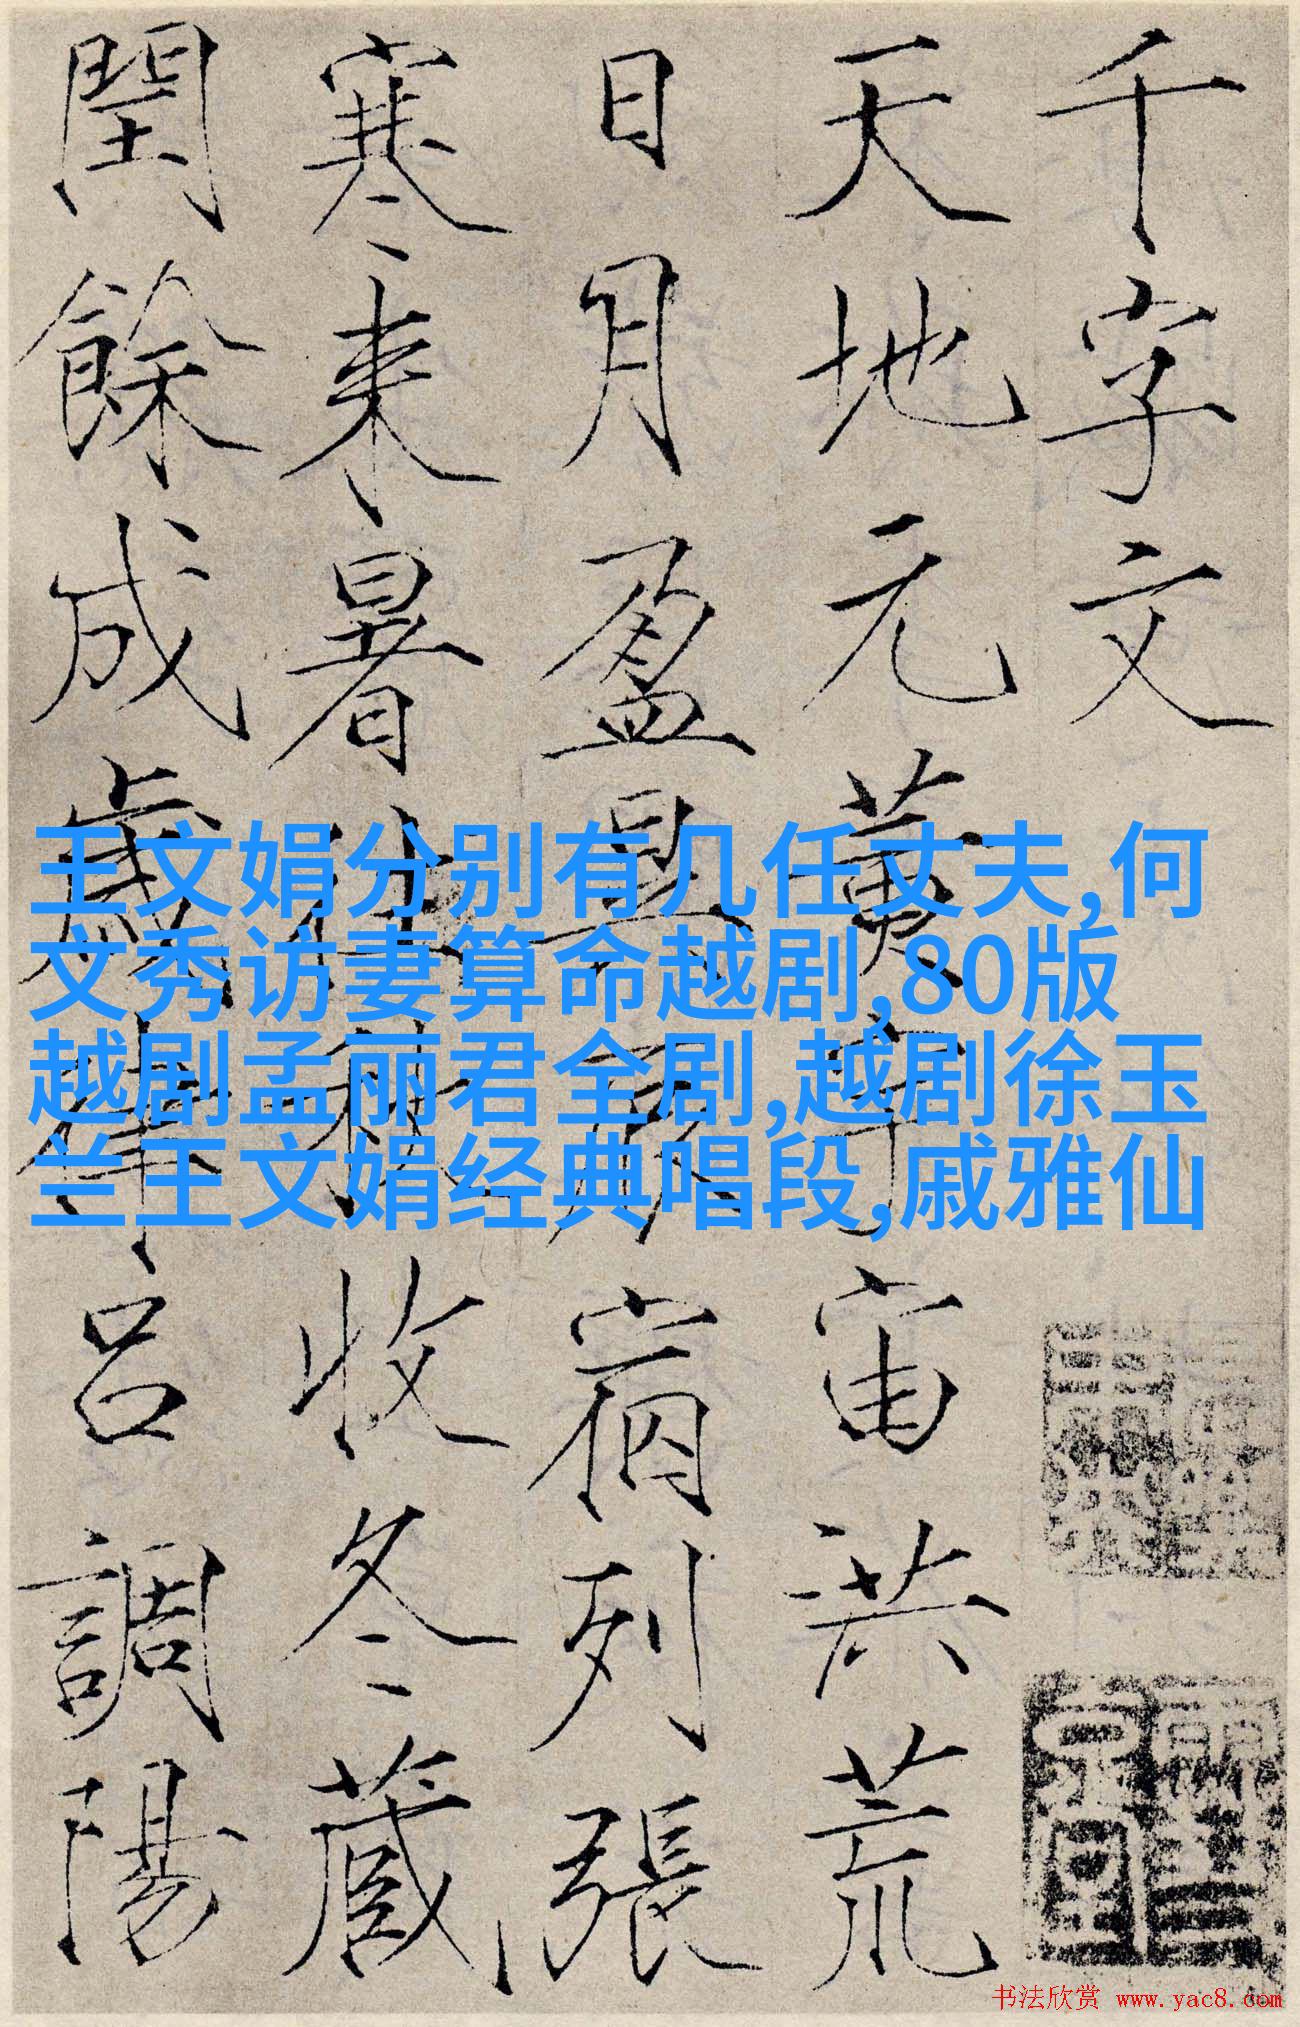 千字文
天地元黃宇宙洪荒
日月盈昃辰宿列張
寒来暑往秋收冬藏
閏餘成歲律吕調陽
王文娟分别有几任丈夫,何
文秀访妻算命越剧,80版
越剧孟丽君全剧,越剧徐玉
兰王文娟经典唱段,戚雅仙
书法欣赏 www.yac8.com